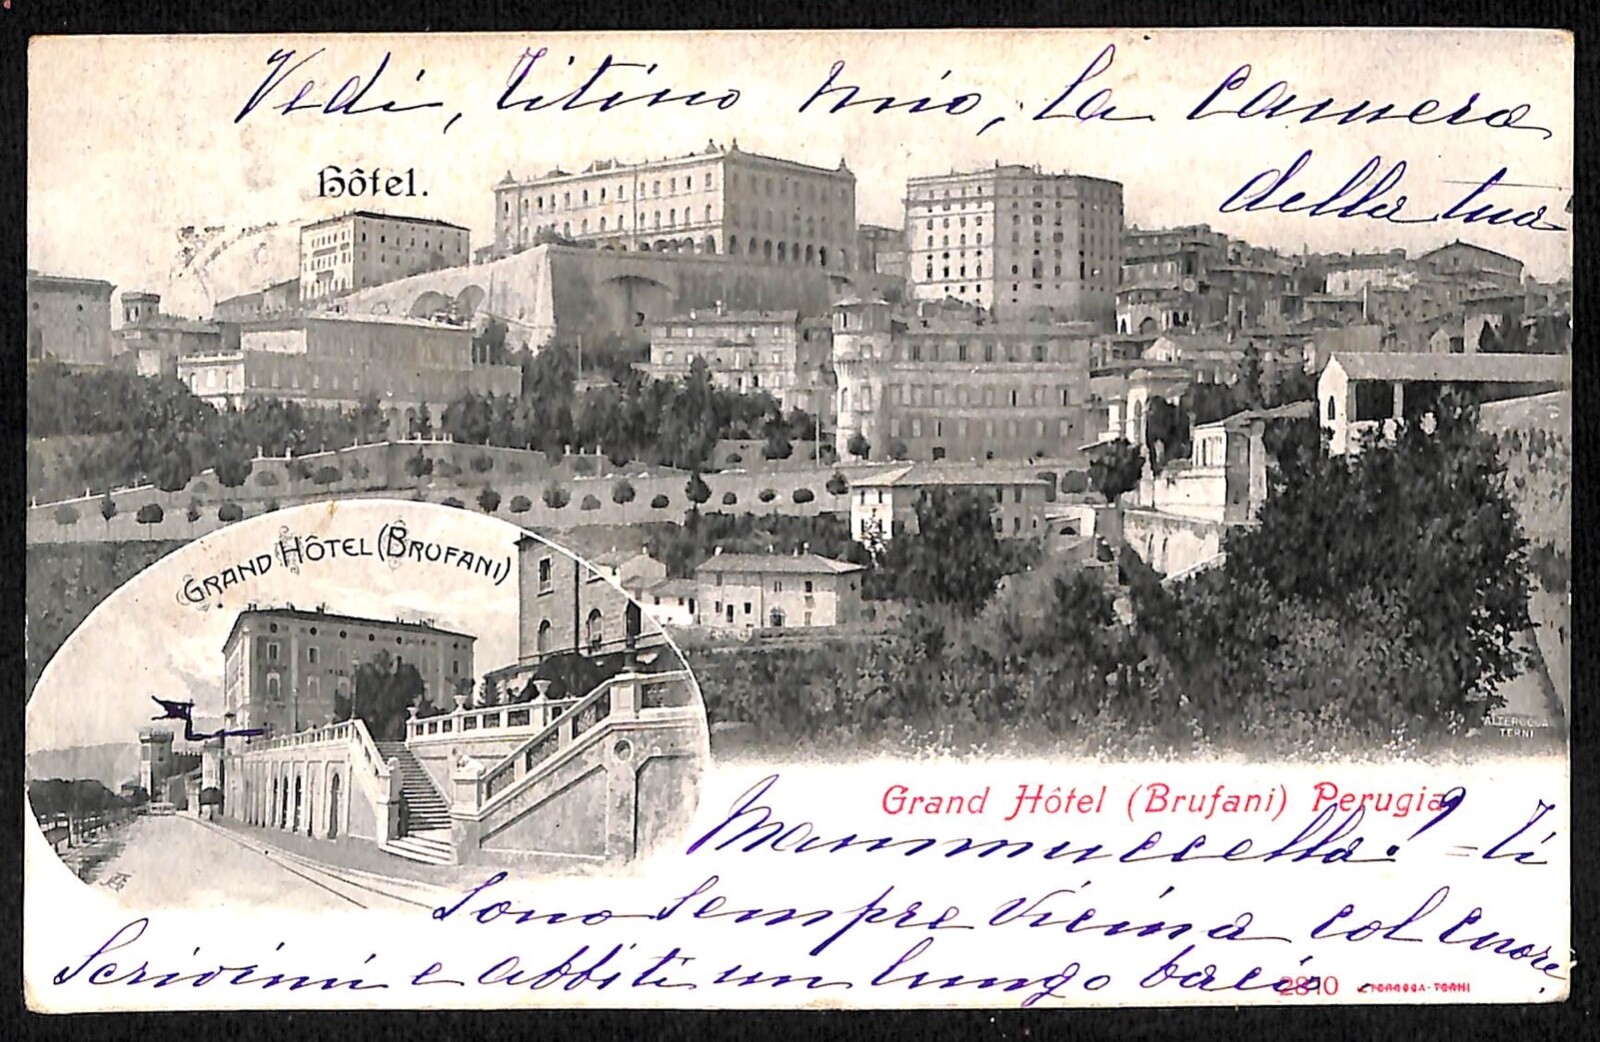 Vedi, Titino mio, la camera
della tua
Hôtel.
GRAND HÔTEL (BRUFANI)
ALTEROCCA
TERNI
Grand Hôtel (Brufani) Perugia
Mammuccella! = Ti
sono sempre vicina col cuore.
Scrivimi e abbiti un lungo bacio.
2810 ALTEROCCA-TERNI